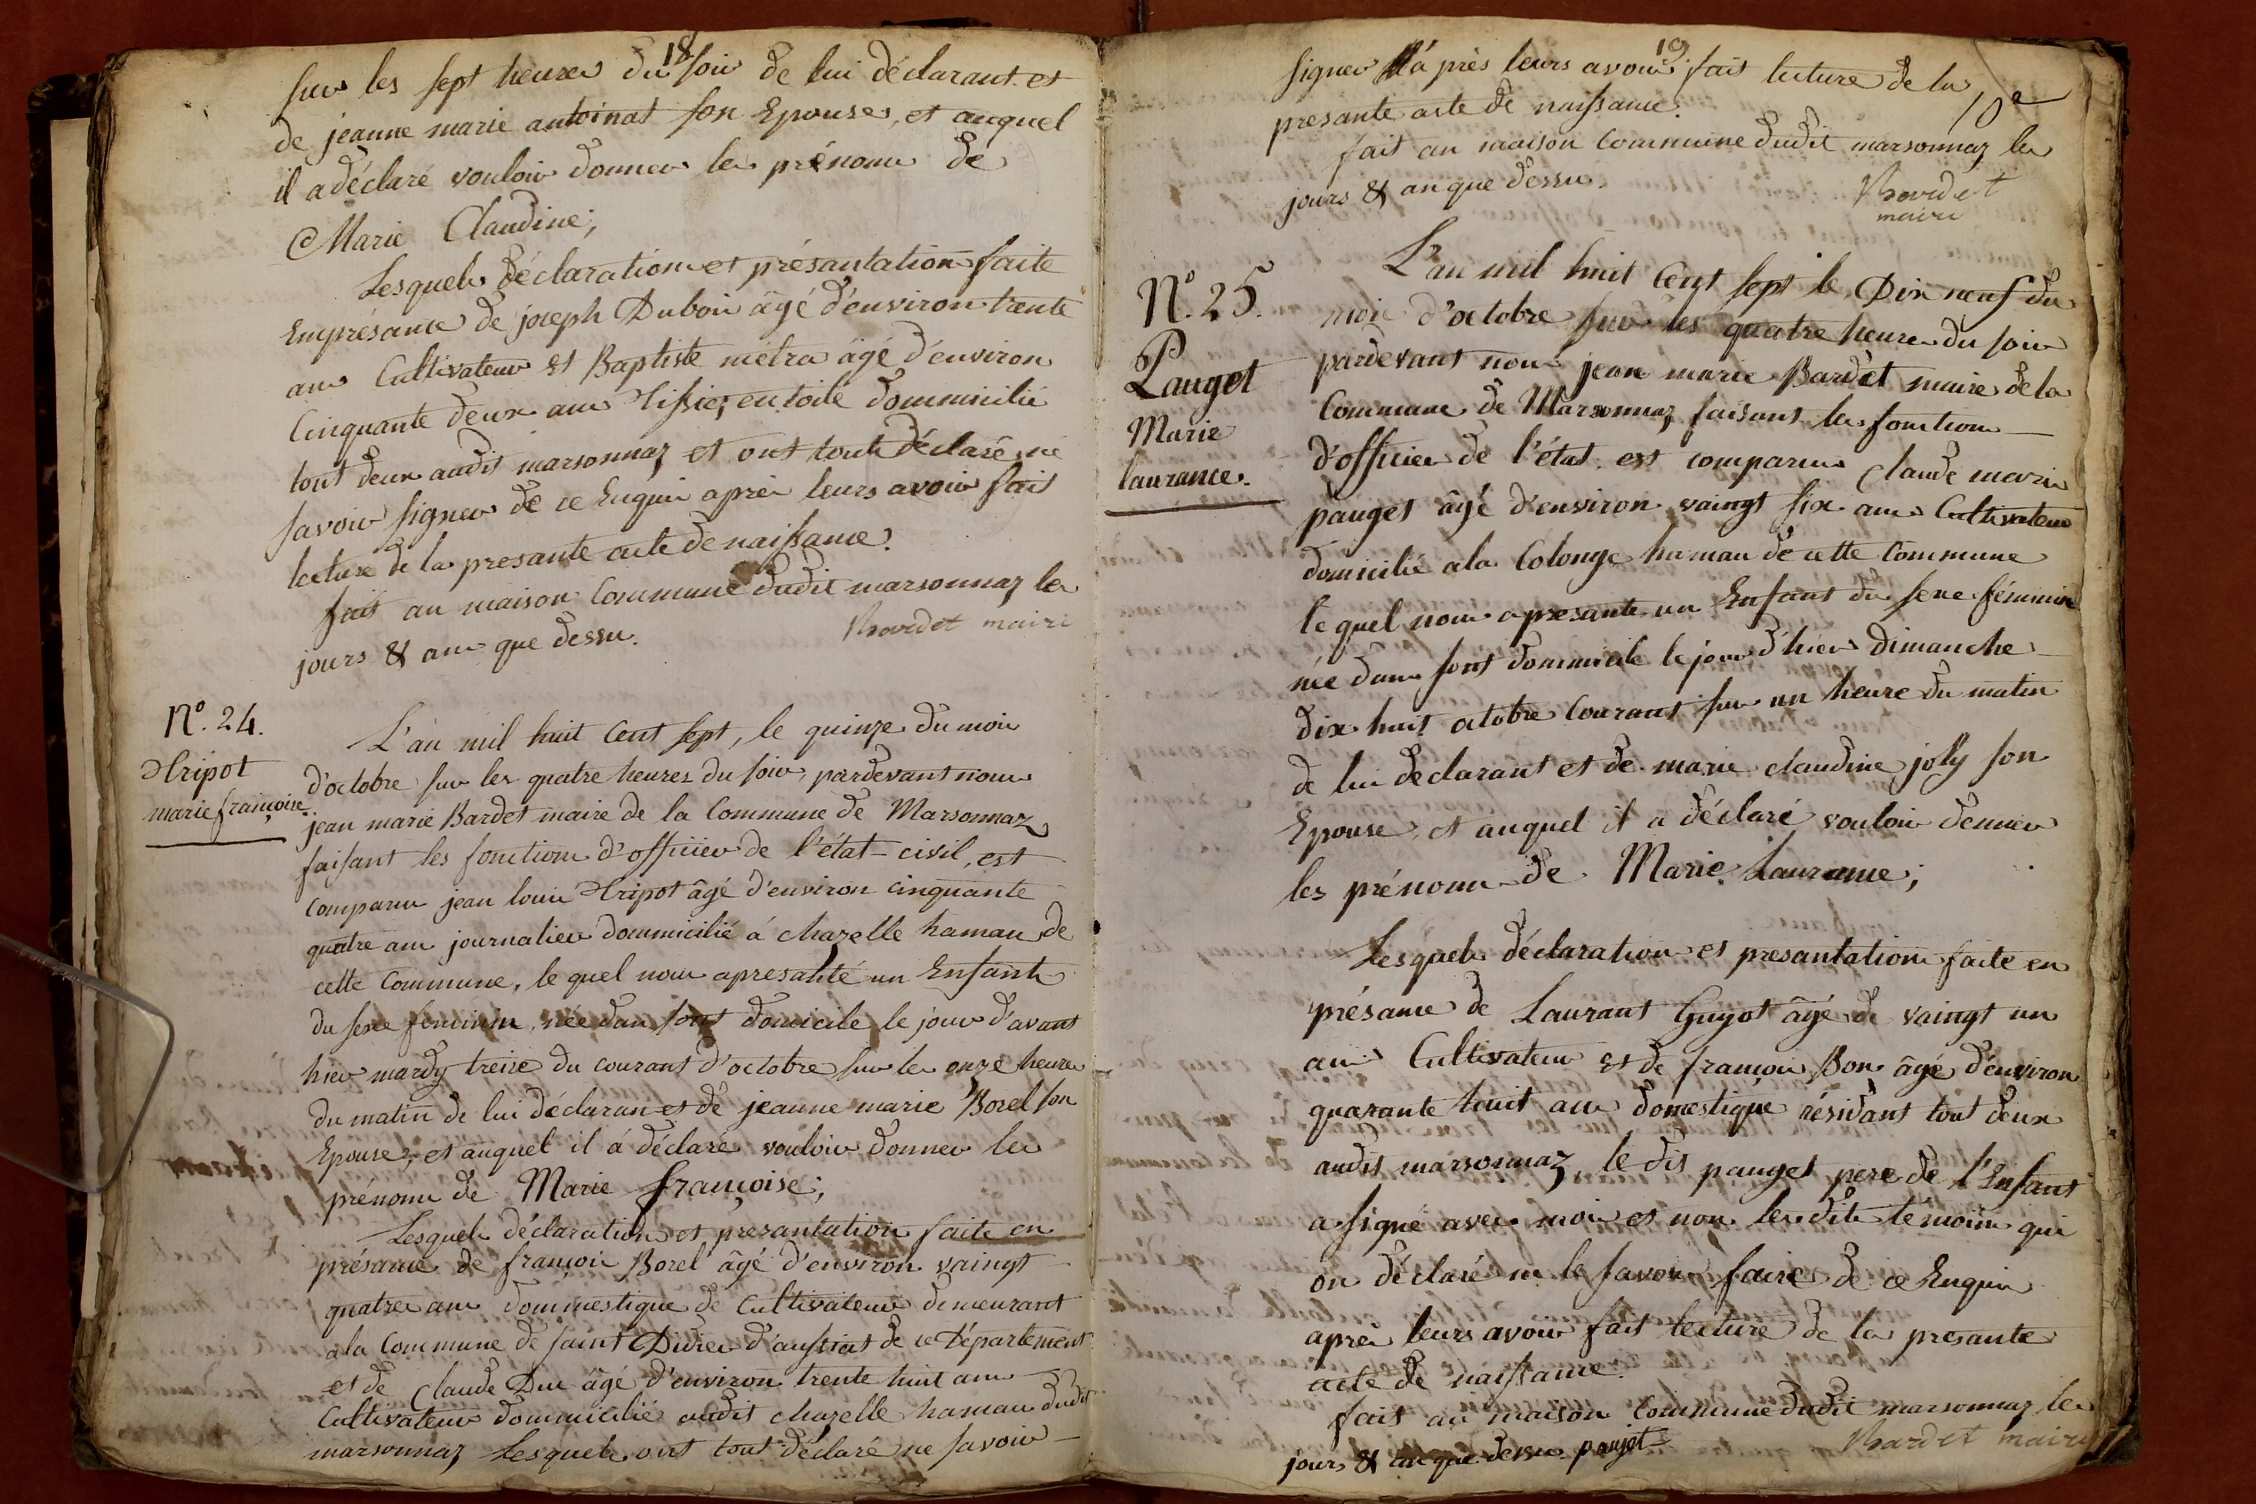 18
sur les sept heures du soir de lui déclarant et
de jeanne marie antoinat son Epouse, et auquel
il a déclaré vouloir donner les prénoms de
Marie Claudine;
Lesquels déclaration et présantation faite
Enprésance de joseph Dubois âgé d'environ trente
ans Cultivateur et Baptiste métra âgé d'environ
Cinquante deux ans Tissier en toile dommicilié
tout deux audit marsonnaz et ont touts déclaré ne
savoir signer de ce Enquis après leurs avoir fait
lecture de la presante acte de naissance.
fait au maison Commune dudit marsonnaz les
jours & ans que dessu.
Bardet maire
N°. 24.
Tripot
marie françoise
L'an mil huit Cent sept, le quinze du mois
d'octobre sur les quatre heures du soir, pardevant nous
jean marie Bardet maire de la Commune de Marsonnaz
faisant les fonctions d'officier de l'état-civil, est
comparu jean louis Tripot âgé d'environ cinquante
quatre ans journalier dommicilié á chazelle hamau de
cette Commune, le quel nous apresanté un Enfant
du sexe feminin, née dans sont domicile le jour d'avant
hier mardy treize du courant d'octobre sur les onze heures
du matin de lui déclaran et de jeanne marie Borel son
Epouse, et auquel il á déclaré vouloir donner les
prénoms de Marie françoise;
Lesquels déclaration et presantation faite en
présance de françois Borel âgé d'environ vaingt
quatre ans dommestique de Cultivateur demeurant
a la Commune de saint Didier d'aussiat de ce Département
et de Claude Duc âgé d'environ trente huit ans
Cultivateur dommicilié audit chazelle hamau dudit
marsonnaz Lesquels ont tout déclaré ne savoir
19
signer d'á près leurs avoir fait lecture de la
presante acte de naissance.
10e
fait au maison Commune dudit marsonnaz les
jours & an que dessu.
Bardet
maire
N°. 25.
Pauget
Marie
laurance.
L'an mil huit Cent sept le Dix neuf du
mois d'octobre sur les quatre heures du soir
pardevant nous jean marie Bardet maire de la
Commune de Marsonnaz faisant les fonctions
d'officier de l'état est comparu Claude marie
pauget âgé d'environ vaingt six ans Cultivateur
domicilié a la Colonge hamau de cette Commune
le quel nous apresante un Enfant du sexe féminin
née dans sont dommicile le jour d'hier Dimanche
dix huit octobre Courant sur un heure du matin
de lui declarant et de marie claudine joly son
Epouse, et auquel il a déclaré vouloir donner
les prénoms de Marie Laurance;
Lesquels déclaration et presantation faite en
présance de Laurant Guyot âgé de vaingt un
ans Cultivateur et de françois Bon âgé d'environ
quarante huit ans domestique résidant tout deux
audit marsonnaz, le dit pauget pere de l'Enfant
a signé avec moi et non les dits témoins qui
on déclaré ne le savoir faire de ce Enquis
après leurs avoir fait lecture de la presante
acte de naissance.
fait au maison Commune dudit marsonnaz les
jours & an que dessu. paujet
Bardet maire